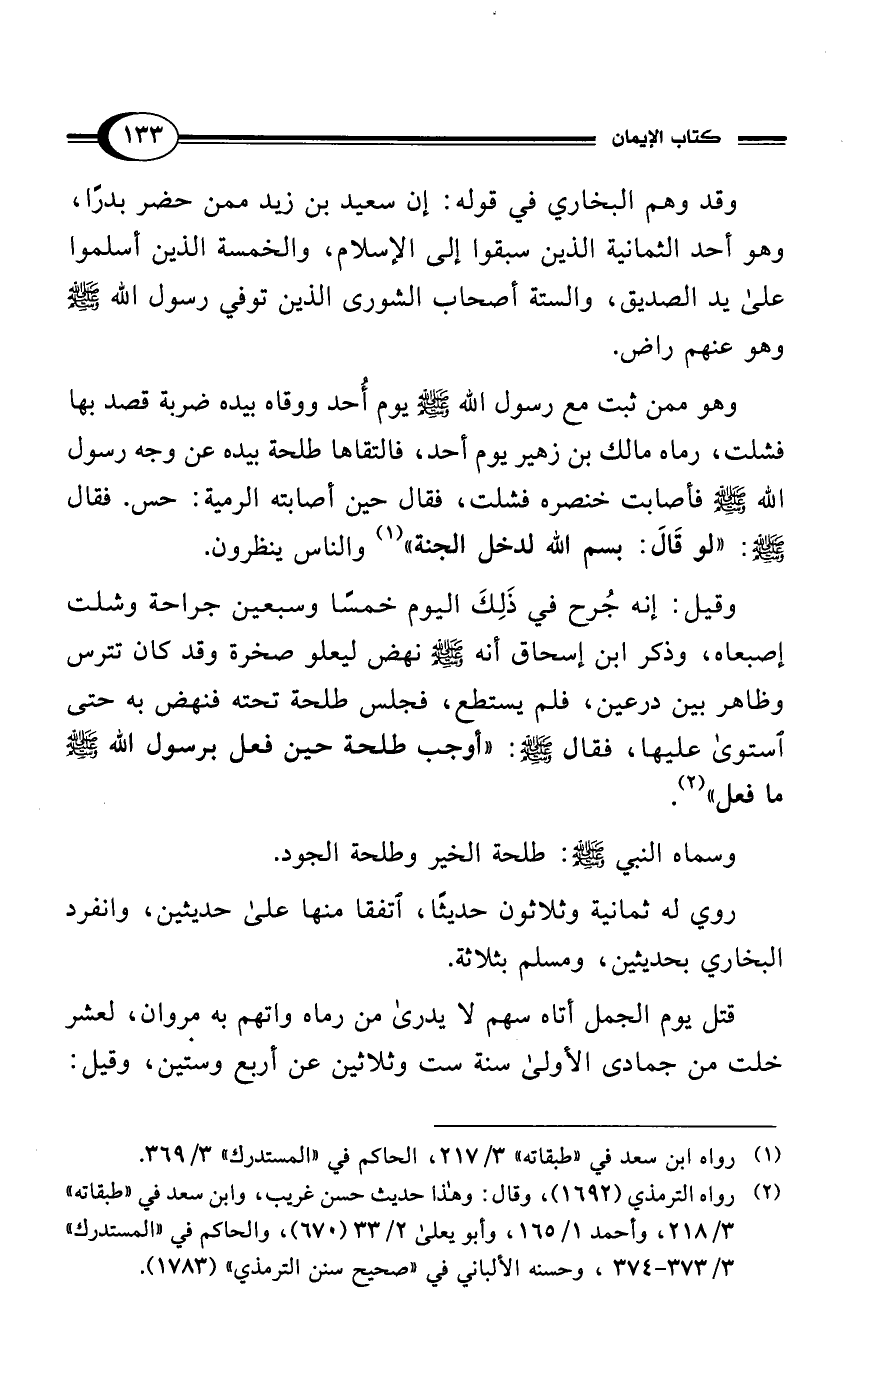 كتاب الإيمان ١٣٣
وقد وهم البخاري في قوله: إن سعيد بن زيد ممن حضر بدرًا،
وهو أحد الثمانية الذين سبقوا إلى الإسلام، والخمسة الذين أسلموا
علىٰ يد الصديق، والستة أصحاب الشورى الذين توفي رسول الله ﷺ
وهو عنهم راض.
وهو ممن ثبت مع رسول الله ﷺ يوم أُحد ووقاه بيده ضربة قصد بها
فشلت، رماه مالك بن زهير يوم أحد، فالتقاها طلحة بيده عن وجه رسول
الله ﷺ فأصابت خنصره فشلت، فقال حين أصابته الرمية: حس. فقال
ﷺ: «لو قَالَ: بسم الله لدخل الجنة»(١) والناس ينظرون.
وقيل: إنه جُرح في ذَلِكَ اليوم خمسًا وسبعين جراحة وشلت
إصبعاه، وذكر ابن إسحاق أنه ﷺ نهض ليعلو صخرة وقد كان تترس
وظاهر بين درعين، فلم يستطع، فجلس طلحة تحته فنهض به حتى
ٱستوىٰ عليها، فقال ﷺ: «أوجب طلحة حين فعل برسول الله ﷺ
ما فعل»(٢).
وسماه النبي ﷺ: طلحة الخير وطلحة الجود.
روي له ثمانية وثلاثون حديثًا، ٱتفقا منها علىٰ حديثين، وانفرد
البخاري بحديثين، ومسلم بثلاثة.
قتل يوم الجمل أتاه سهم لا يدرىٰ من رماه واتهم به مروان، لعشر
خلت من جمادى الأولىٰ سنة ست وثلاثين عن أربع وستين، وقيل:
(١) رواه ابن سعد في «طبقاته» ٣/ ٢١٧، الحاكم في «المستدرك» ٣/ ٣٦٩.
(٢) رواه الترمذي (١٦٩٢)، وقال: وهذا حديث حسن غريب، وابن سعد في «طبقاته»
٣/ ٢١٨، وأحمد ١/ ١٦٥، وأبو يعلىٰ ٢/ ٣٣ (٦٧٠)، والحاكم في «المستدرك»
٣/ ٣٧٣-٣٧٤ ، وحسنه الألباني في «صحيح سنن الترمذي» (١٧٨٣).